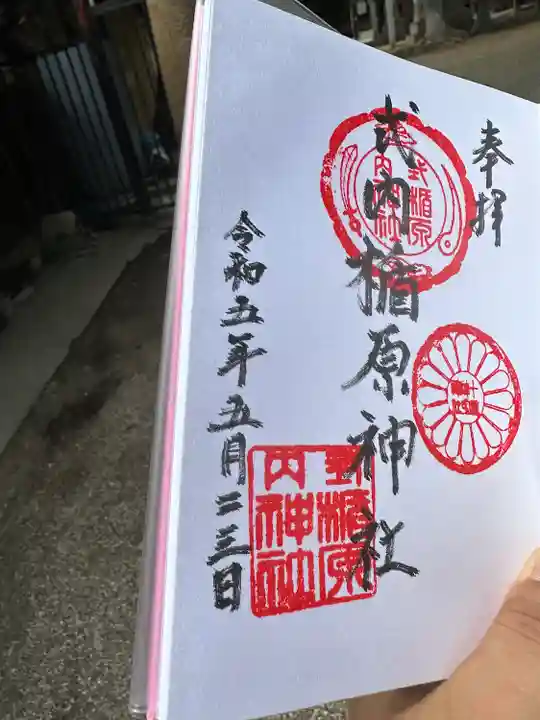 奉拝
式内楯原神社
式楯原
内神社
令和五年五月二三日
式楯原
内神社